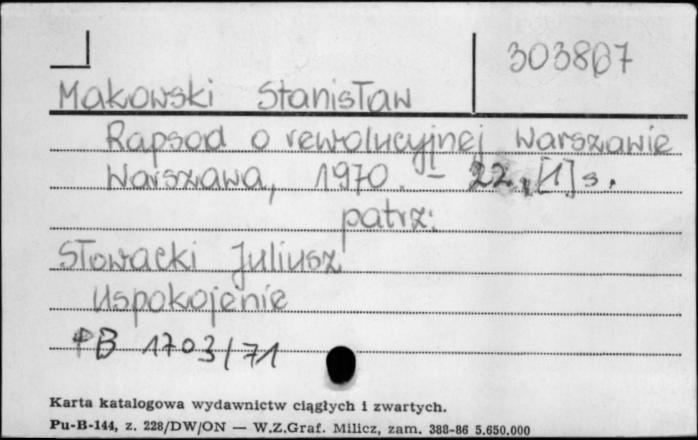 303807
Makowski Stanisław
Rapsod o rewolucyjnej Warszawie
Warszawa, 1970. - 22, [1] s.
patrz:
Słowacki Juliusz
Uspokojenie
PB 1703/71
Karta katalogowa wydawnictw ciągłych i zwartych.
Pu-B-144, z. 228/DW/ON — W.Z.Graf. Milicz, zam. 388-86 5.650.000